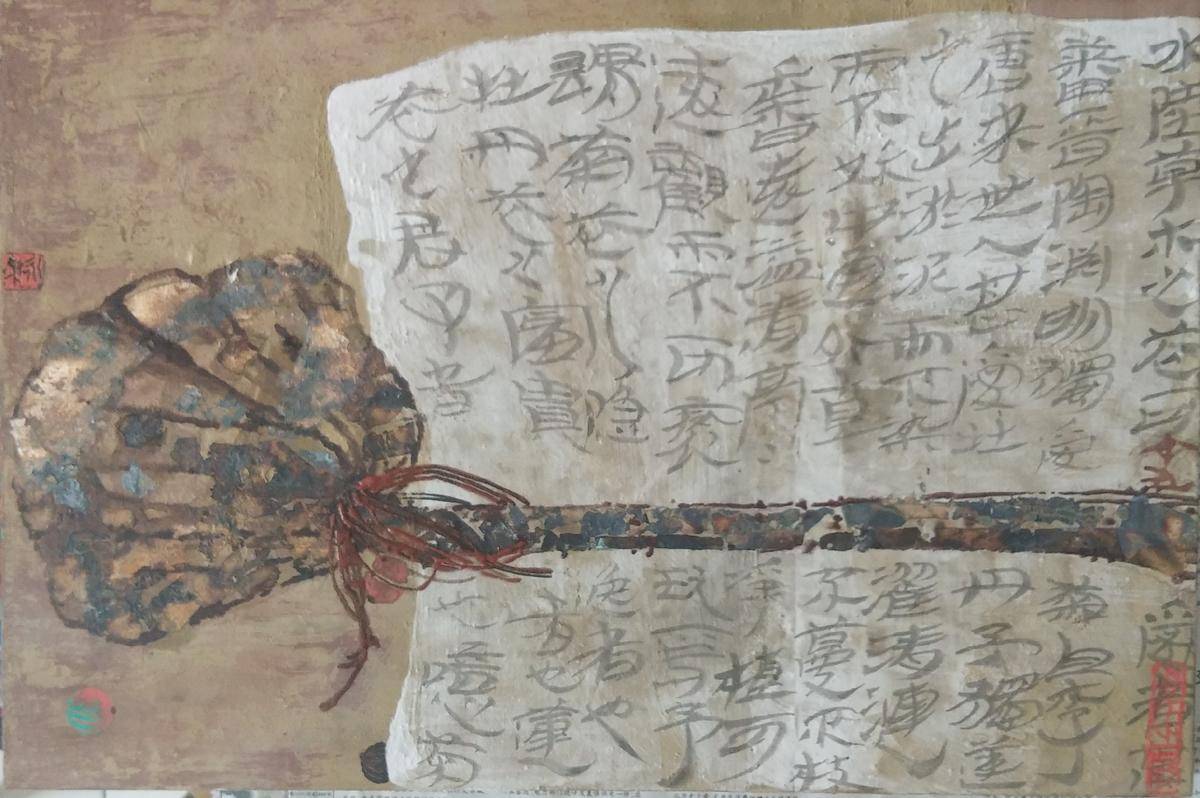 水陸草木之花可者
蕃晋陶淵明獨愛菊自李
唐來世人甚愛牡丹予獨蓮
之出淤泥而不染濯清漣
而不妖中通外直不蔓不枝
香遠益清亭淨植可
遠觀而不可褻玩焉予
謂菊花之隐逸者也
牡丹花之富貴者也蓮
花之君子者也噫之菊